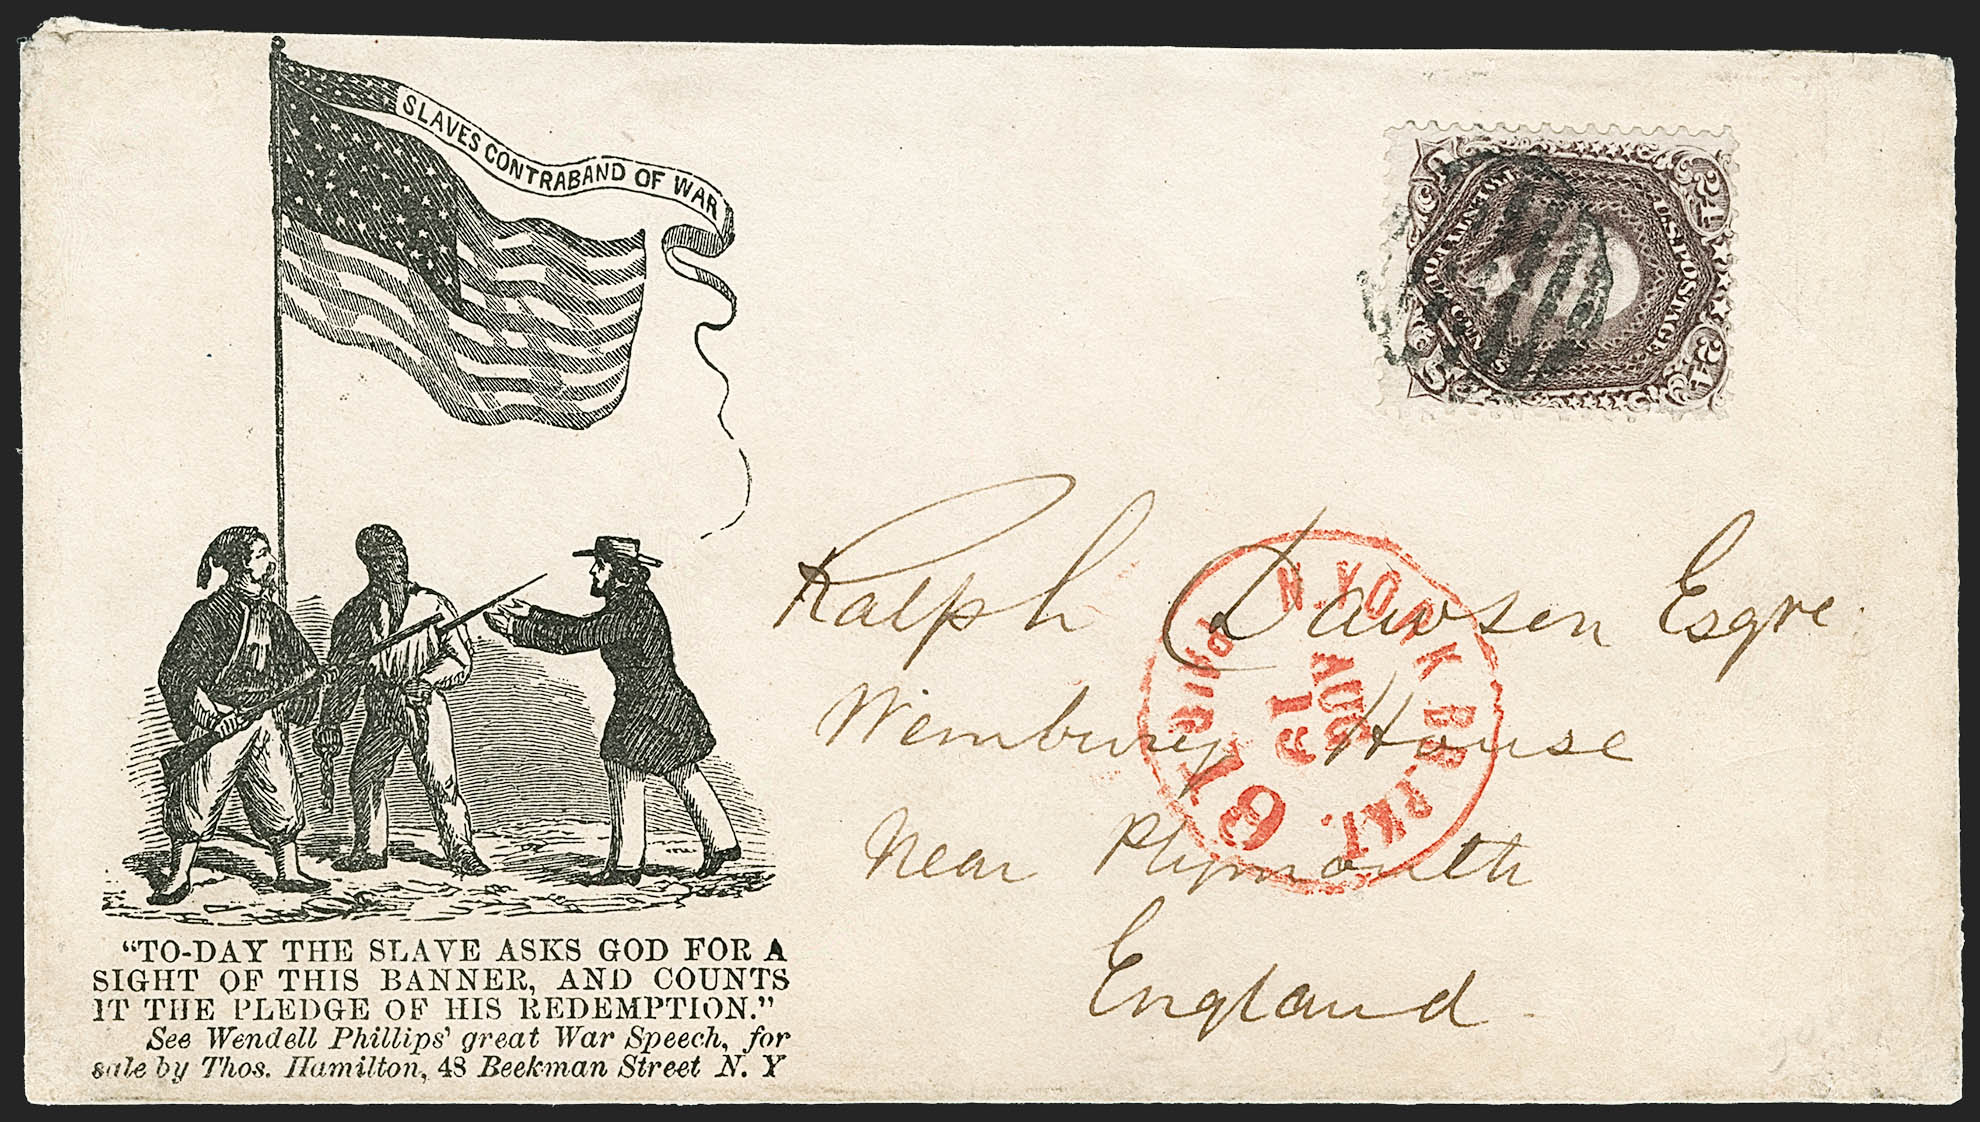 SLAVES CONTRABAND OF WAR
"TO-DAY THE SLAVE ASKS GOD FOR A
SIGHT OF THIS BANNER, AND COUNTS
IT THE PLEDGE OF HIS REDEMPTION."
See Wendell Phillips' great War Speech, for
sale by Thos. Hamilton, 48 Beekman Street N. Y
24
U.S. POSTAGE.
24
TWENTY FOUR
CENTS
Ralph Dawson Esqre.
Wembury House
Near Plymouth
England
N. YORK BR. PKT.
AUG
19
PAID